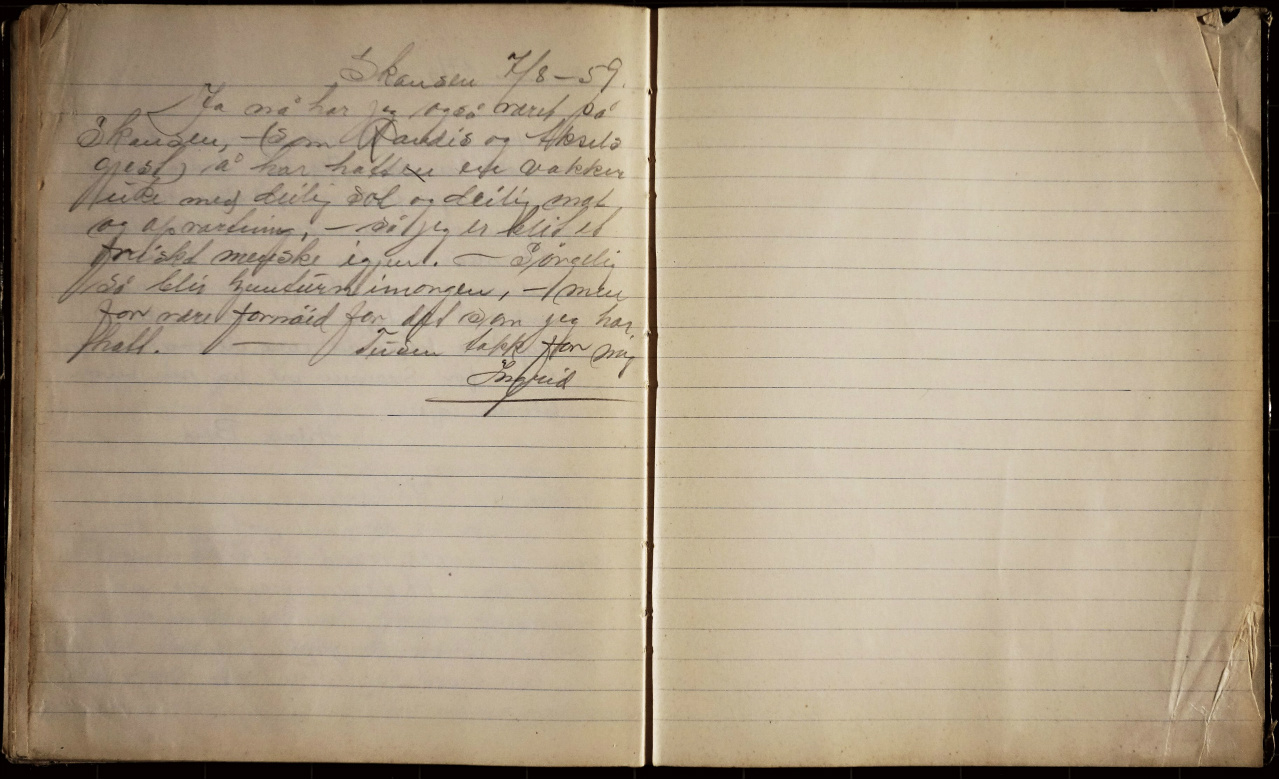 Skansen 7/8-59.
Ja nå har jeg også været på
Skansen, - (som Randis og Aksels
gjest) å har hatt en vakker
uke med deilig sol og deilig mat
og opvartning, - så jeg er blit et
friskt meneske igjen. — Sørgelig
så blir hjemturn imorgen, - men
for være fornøid for det som jeg har
hatt. — Tusen takk for mig
Ingrid